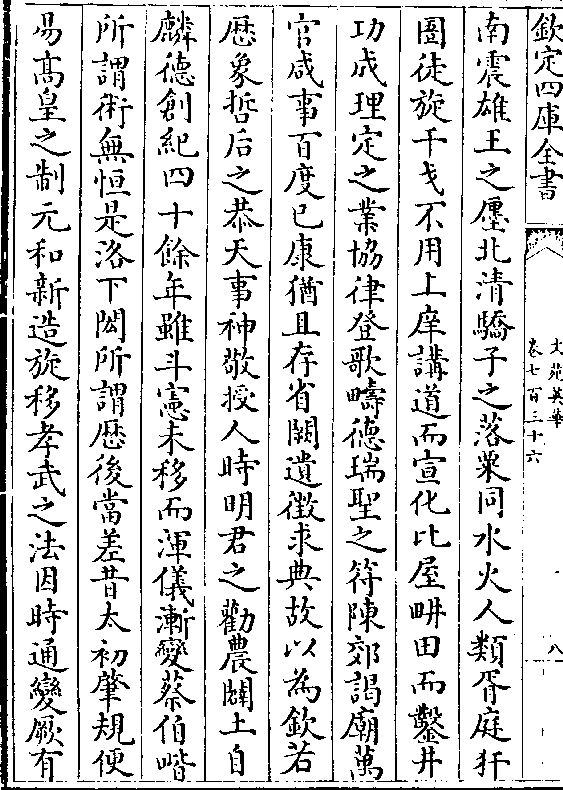 欽定四庫全書
文苑英華
卷七百三十六
八
南震雄王之㕓北清驕子之落粟同水火人類胥庭犴
圄徒旋干戈不用上庠講道而宣化比屋畊田而鑿井
功成理定之業協律登歌疇德瑞聖之符陳郊謁廟萬
官咸事百度已康猶且存省闕遺徵求典故以為欽若
厯象哲后之恭天事神敬授人時明君之勸農闢土自
麟德創紀四十餘年雖斗憲未移而渾儀漸變蔡伯喈
所謂術無恒是洛下閎所謂厯後當差昔太初肇規便
易髙皇之制元和新造旋移孝武之法因時通變厥有